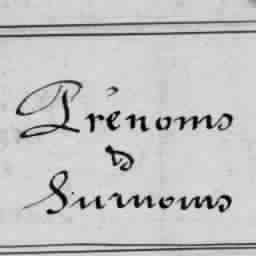 Prénoms
&
Surnoms